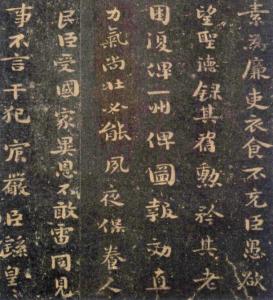 素為廉吏衣食不充臣愚欲
望聖德錄其舊勳矜其老
困復俾一州俾圖報効直
力氣尚壯必能夙夜保養人
民臣受國家異恩不敢雷同見
事不言干犯宸嚴臣繇皇